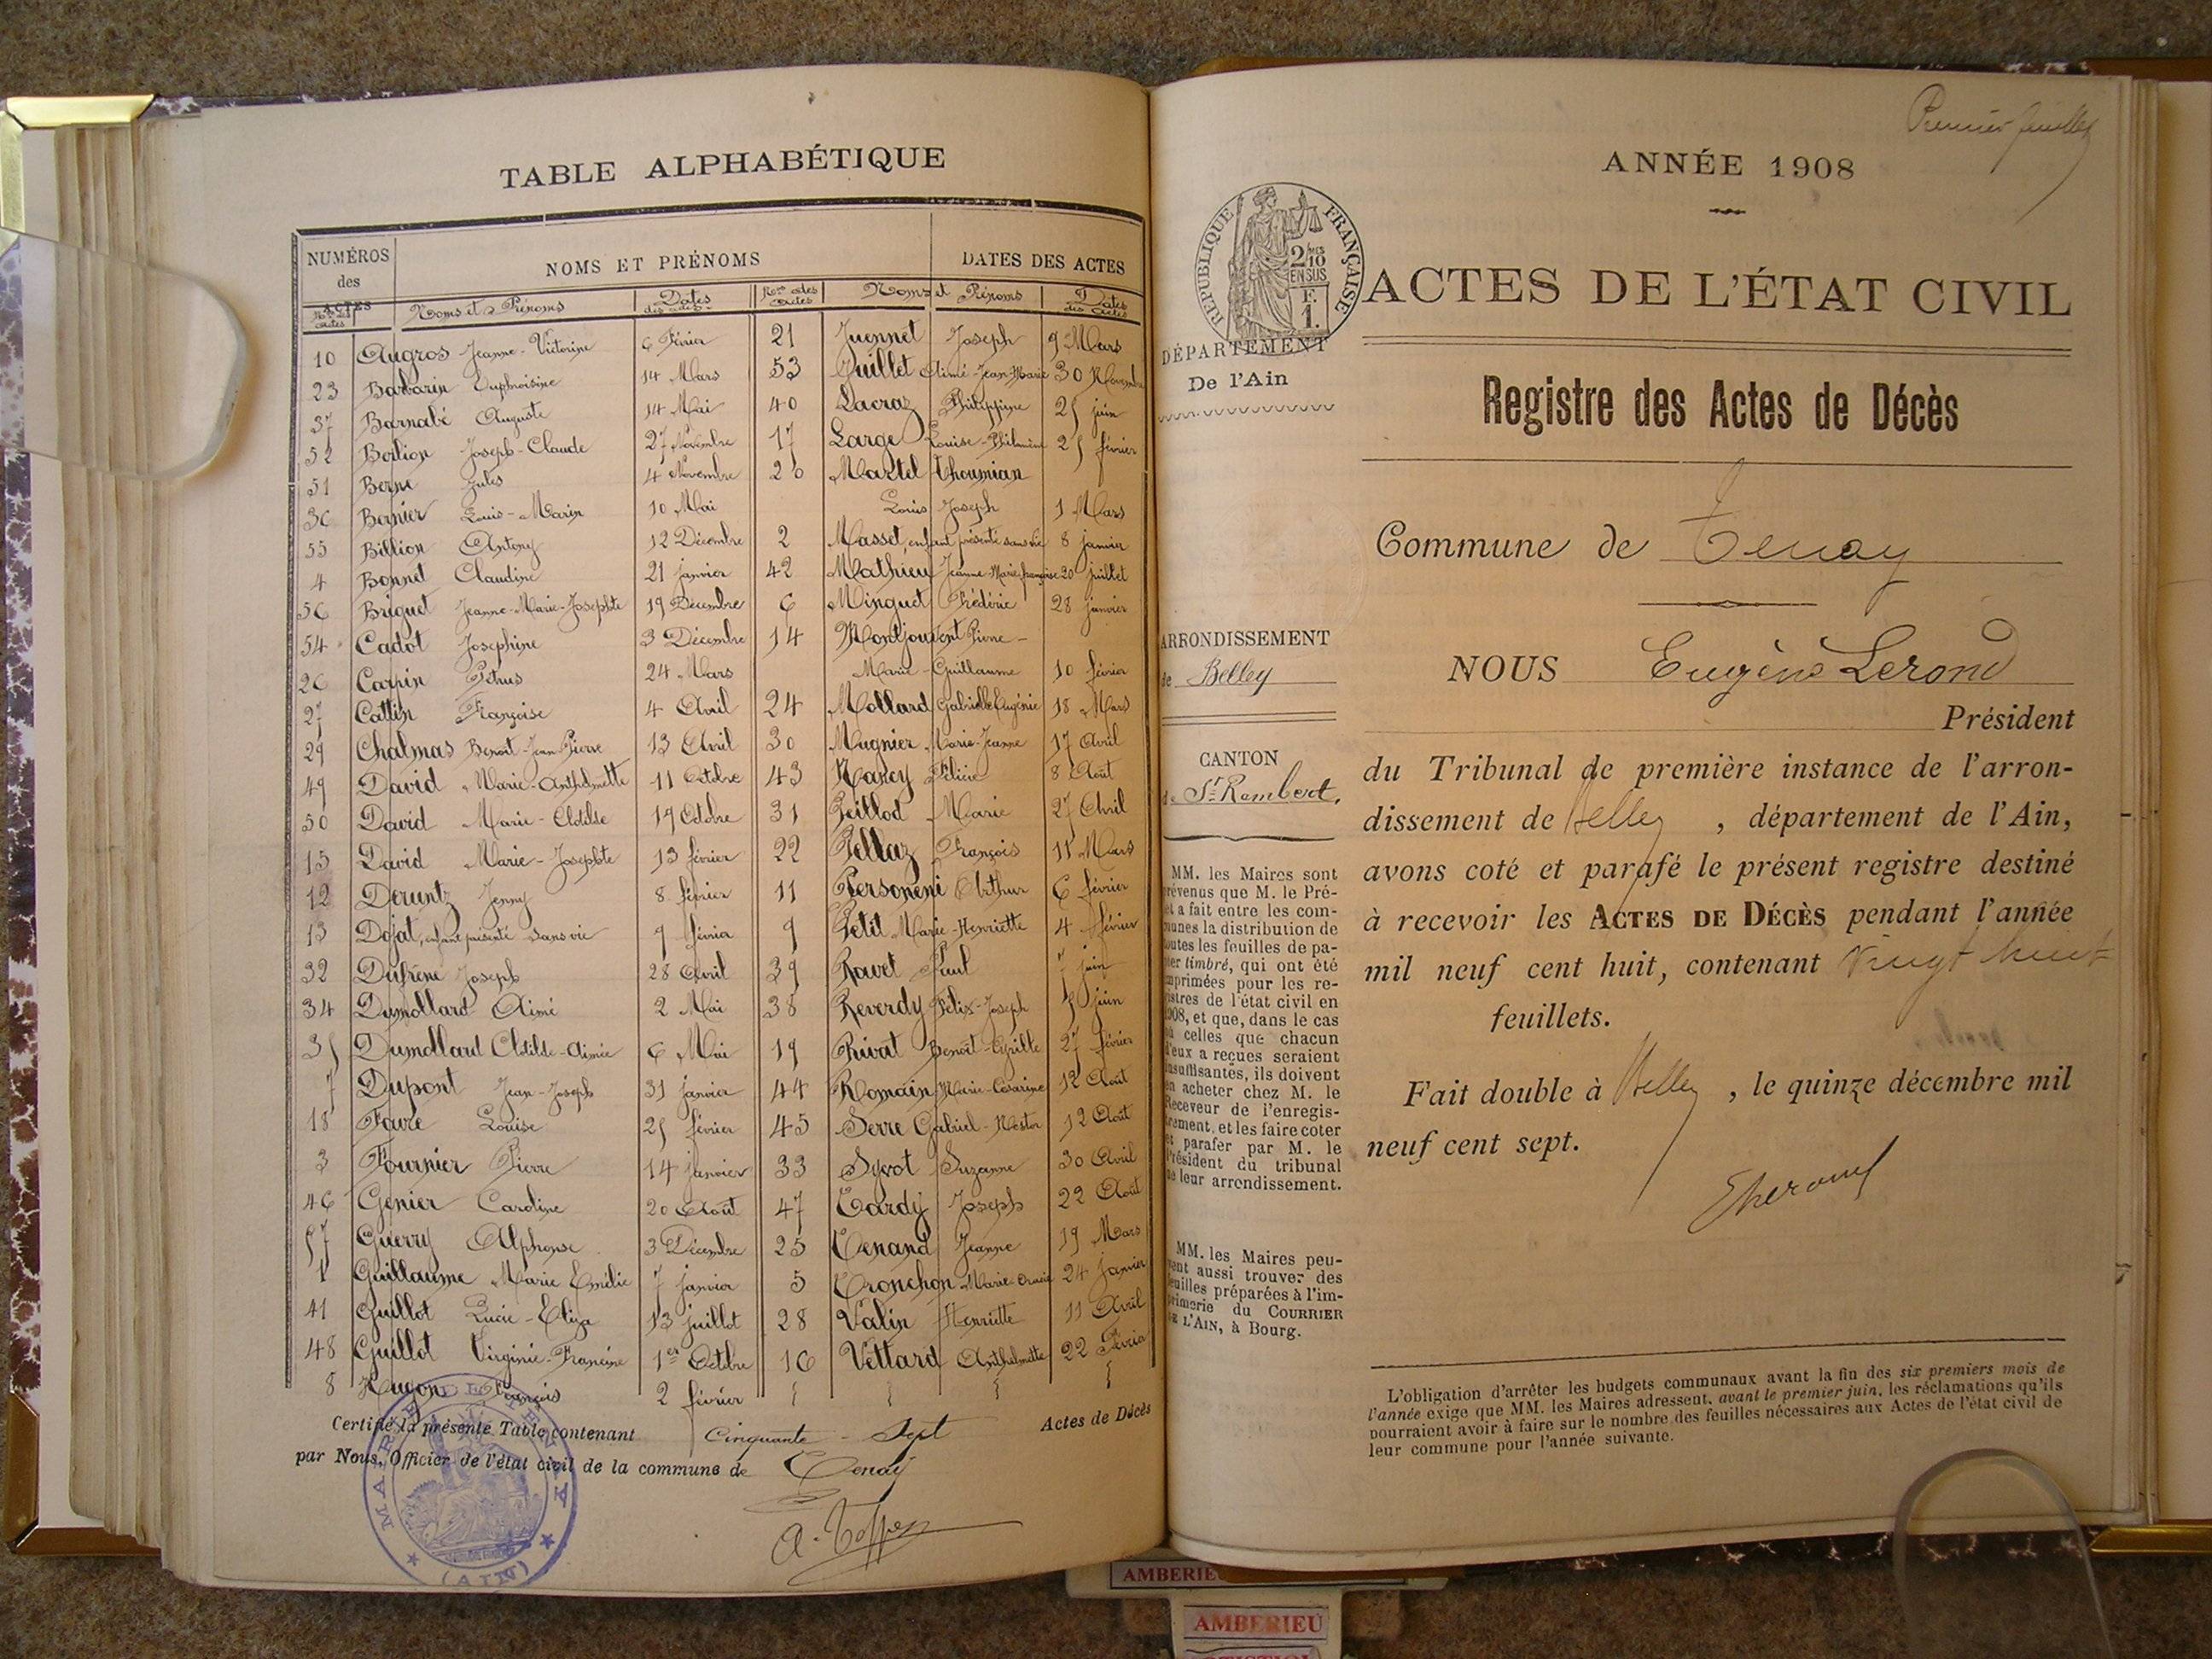 TABLE ALPHABÉTIQUE
NUMÉROS des ACTES NOMS ET PRÉNOMS DATES DES ACTES
Nos des actes Noms et Prénoms Dates des actes Nos des actes Noms et Prénoms Dates des actes
10 Augros Jeanne-Victorine 6 Février 21 Juennet Joseph 9 Mars
23 Barbarin Euphroisine 14 Mars 53 Juillet Aimé-Jean-Marie 30 Novembre
37 Barnabé Auguste 14 Mai 40 Lacraz Philippine 25 juin
52 Bollion Joseph-Claude 27 Novembre 17 Large Louise-Philomène 25 février
51 Berne Jules 4 Novembre 20 Martel Thoumian
36 Bernier Louis-Marin 10 Mai Louis Joseph 1 Mars
55 Billion Antony 12 Décembre 2 Masset, enfant présenté sans vie 8 janvier
4 Bonnet Claudine 21 janvier 42 Mathieu Jeanne-Marie-françoise 20 juillet
56 Briguet Jeanne-Marie-Josephte 19 Décembre 6 Minguet Frédéric 28 janvier
54 Cadot Josephine 3 Décembre 14 Montjouvent Pierre-
26 Carpin Pétrus 24 Mars Marie-Guillaume 10 février
27 Cattin Françoise 4 Avril 24 Mollard Gabrielle Eugénie 18 Mars
29 Chalmas Benoît-Jean-Pierre 13 Avril 30 Mugnier Marie-Jeanne 17 Avril
49 David Marie-Anthelmette 11 Octobre 43 Nancy Félicie 8 Août
50 David Marie-Clotilde 19 Octobre 31 Peillod Marie 27 Avril
15 David Marie-Josephte 13 février 22 Pellaz François 11 Mars
12 Deruntz Jenny 8 février 11 Personeni Arthur 6 février
13 Dojat, enfant présenté sans vie 9 février 9 Petit Marie-Henriette 4 février
32 Dufrène Joseph 28 Avril 39 Ravet Paul 7 juin
34 Dumollard Aimé 2 Mai 38 Reverdy Félix-Joseph 5 juin
35 Dumollard Clotilde-Aimée 6 Mai 19 Rivat Benoît-Cyrille 27 février
7 Dupont Jean-Joseph 31 janvier 44 Romain Marie-Césarine 12 Août
18 Favre Louise 25 février 45 Serre Gabriel-Nestor 12 Août
3 Fournier Pierre 14 janvier 33 Syvot Suzanne 30 Avril
46 Genier Caroline 20 Août 47 Tardy Joseph 22 Août
57 Guerry Alphonse 3 Décembre 25 Tenand Jeanne 19 Mars
1 Guillaume Marie Emélie 7 janvier 5 Tronchon Marie 24 janvier
41 Guillot Lucie-Eliza 13 juillet 28 Valin Henriette 11 Avril
48 Guillot Virginie-Francine 1er Octobre 16 Vettard Anthelmette 22 Février
8 Hugon François 2 février
Certifié la présente Table contenant Cinquante-Sept Actes de Décès
par Nous, Officier de l'état civil de la commune de Tenay
MAIRIE DE TENAY
(AIN)
Premier feuillet
ANNÉE 1908
RÉPUBLIQUE FRANÇAISE
2/10 EN SUS
F. 1.
ACTES DE L'ÉTAT CIVIL
DÉPARTEMENT
De l'Ain
Registre des Actes de Décès
Commune de Tenay
ARRONDISSEMENT
de Belley
NOUS Eugène Lerond
Président
CANTON
de St Rambert.
du Tribunal de première instance de l'arron-
dissement de Belley, département de l'Ain,
avons coté et parafé le présent registre destiné
à recevoir les ACTES DE DÉCÈS pendant l'année
mil neuf cent huit, contenant Vingt huit
feuillets.
Fait double à Belley, le quinze décembre mil
neuf cent sept.
MM. les Maires sont
prévenus que M. le Pré-
et a fait entre les com-
munes la distribution de
toutes les feuilles de pa-
pier timbré, qui ont été
imprimées pour les re-
gistres de l'état civil en
1908, et que, dans le cas
où celles que chacun
d'eux a reçues seraient
insuffisantes, ils doivent
en acheter chez M. le
Receveur de l'enregis-
trement, et les faire coter
et parafer par M. le
Président du tribunal
de leur arrondissement.
MM. les Maires peu-
vent aussi trouver des
feuilles préparées à l'im-
primerie du COURRIER
DE L'AIN, à Bourg.
L'obligation d'arrêter les budgets communaux avant la fin des six premiers mois de
l'année exige que MM. les Maires adressent, avant le premier juin, les réclamations qu'ils
pourraient avoir à faire sur le nombre des feuilles nécessaires aux Actes de l'état civil de
leur commune pour l'année suivante.
AMBERIEU
AMBERIEU